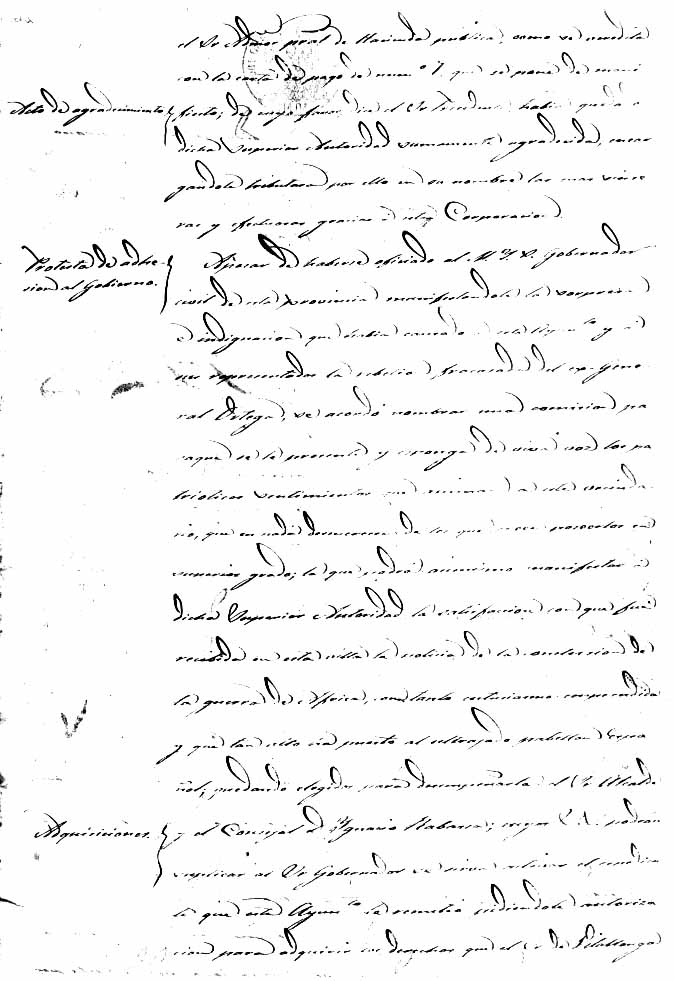 el Sr Admor pral de Hacienda publica, como se acredita
con la carta de pago de num.º 7. que se pone de mani
Acto de agradecimiento
fiesto; de cuyo favor el Sr había quedado
dicha Superior Autoridad sumamente agradecida, encar
gandole tributara por ello en su nombre las mas since
ras y efectuosas gracias á esta Corporacion.
Protesta de adhe-
sion al Gobierno.
Apesar de haberse oficiado al M. I. S. Gobernador
civil de esta provincia manifestandole la sorpresa
é indignacion que habia causado á este Ayun.to y á
sus representados la rebelion fracasada del ex-Gene
ral Ortega, se acordó nombrar una comision pa
raque se le presente y esponga de viva voz los pa
trioticos sentimientos que animan á este vecinda
rio, que en nada desmerecen de los que
superior grado; la que podrá asimismo manifestar á
dicha Superior Autoridad la satisfaccion con que fué
recibida en esta villa la noticia de la conclusion de
la guerra de Africa, con tanto entusiasmo emprendida
y que tan alto ha puesto al ultrajado pabellon espa
ñol; quedando elegidos para desempeñarla el Sr Alcalde
Adquiciciones.
y el Consejal D. Ignacio Rabassa; cuyos S.S. podrán
suplicar al Sr Gobernador se sirva activar el
te que este Ayun.to le remitió pidiendole autoriza
cion para adquirir los derechos que el Sr de